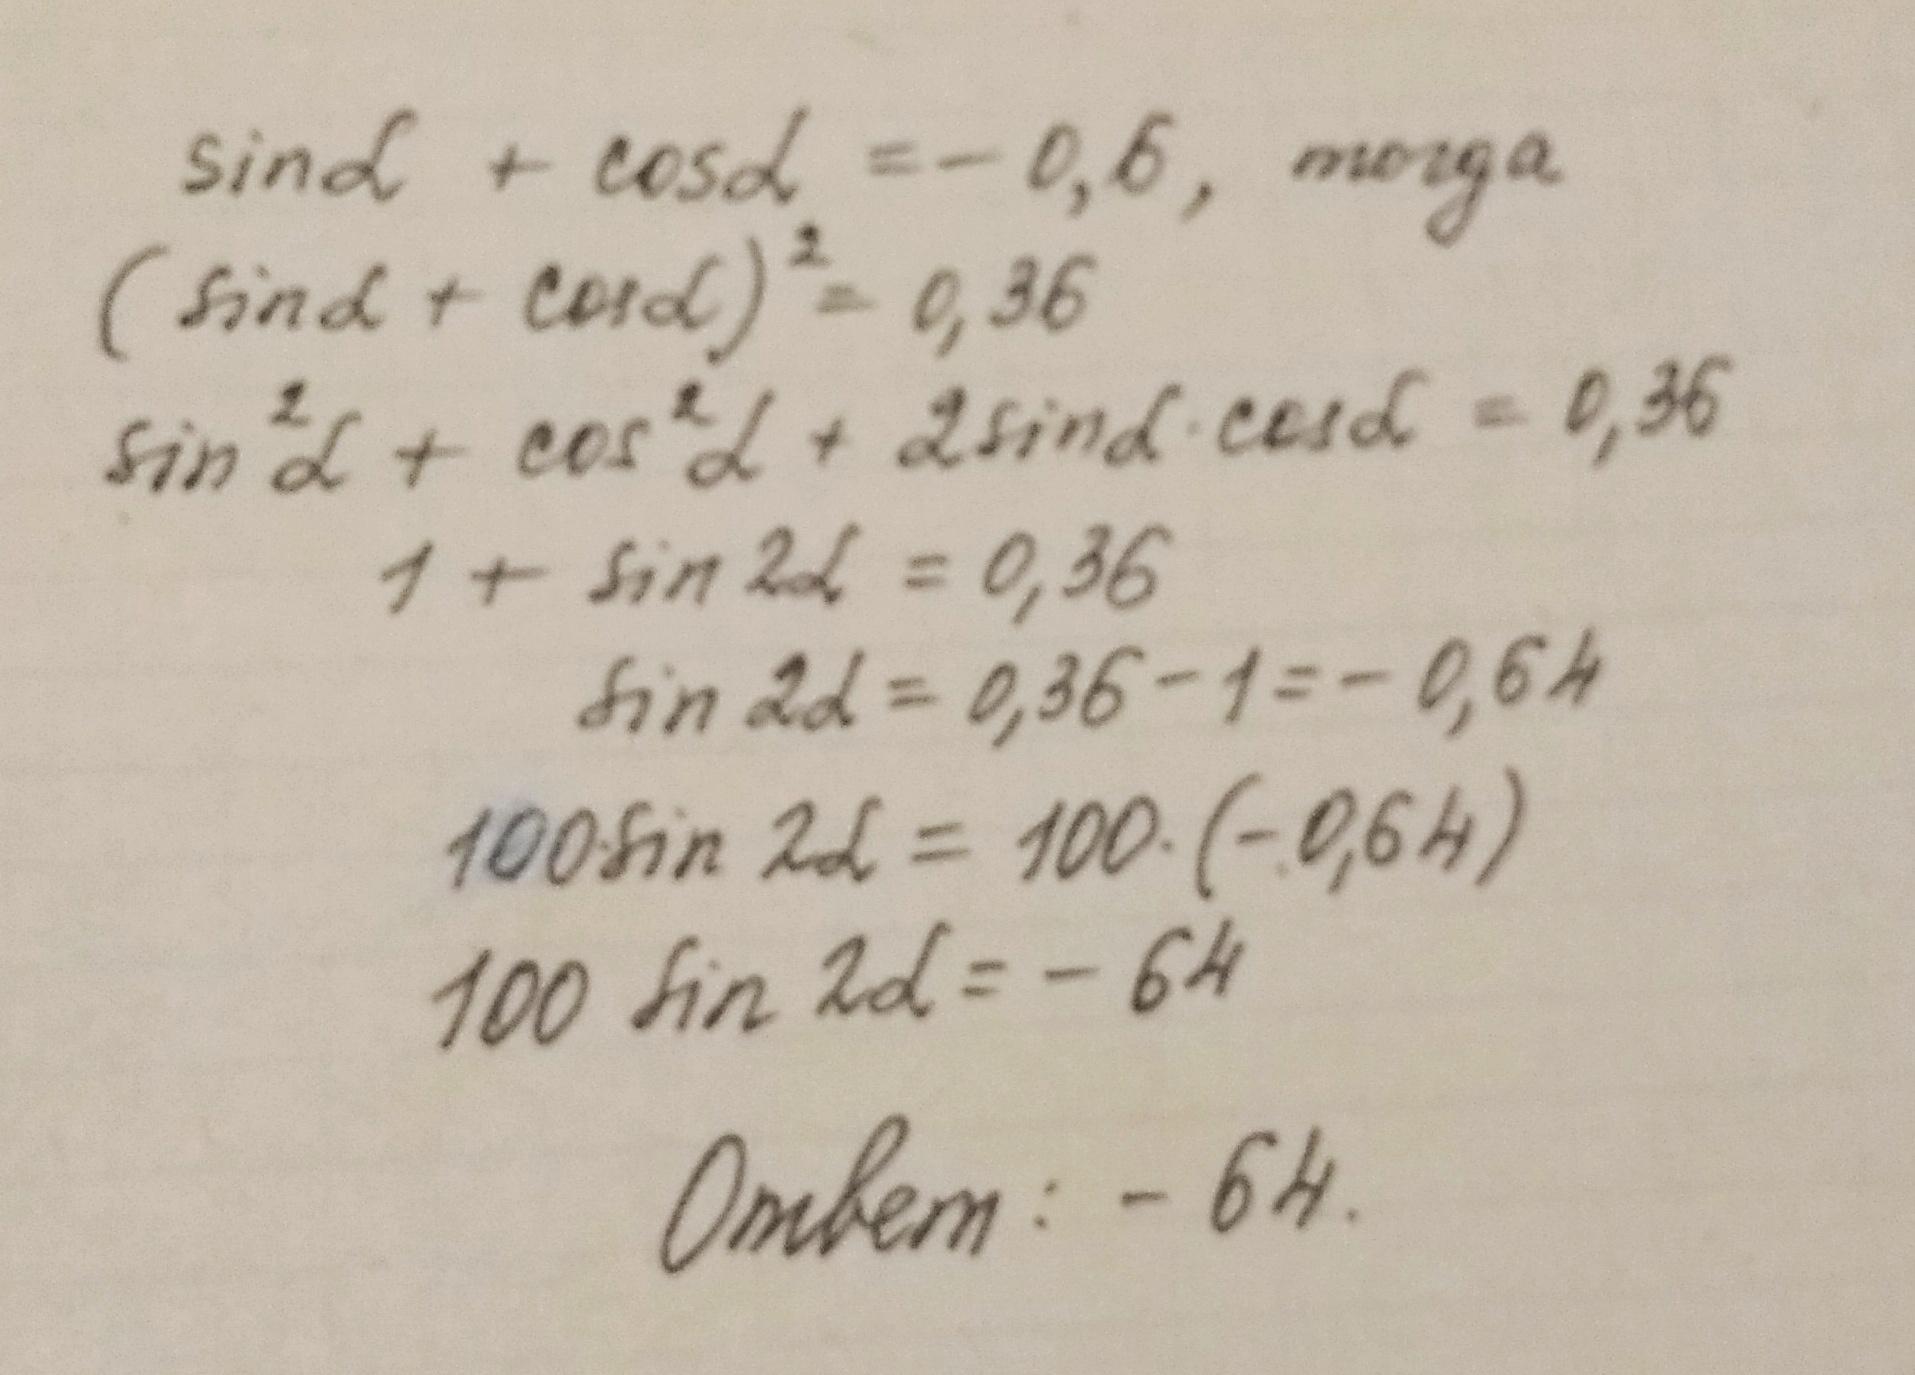 sinα + cosα = - 0,6, тогда
(sinα + cosα)² = 0,36
sin²α + cos²α + 2sinα·cosα = 0,36
1 + sin2α = 0,36
sin2α = 0,36 - 1 = - 0,64
100·sin 2α = 100·(-0,64)
100 sin 2α = - 64
Ответ: - 64.